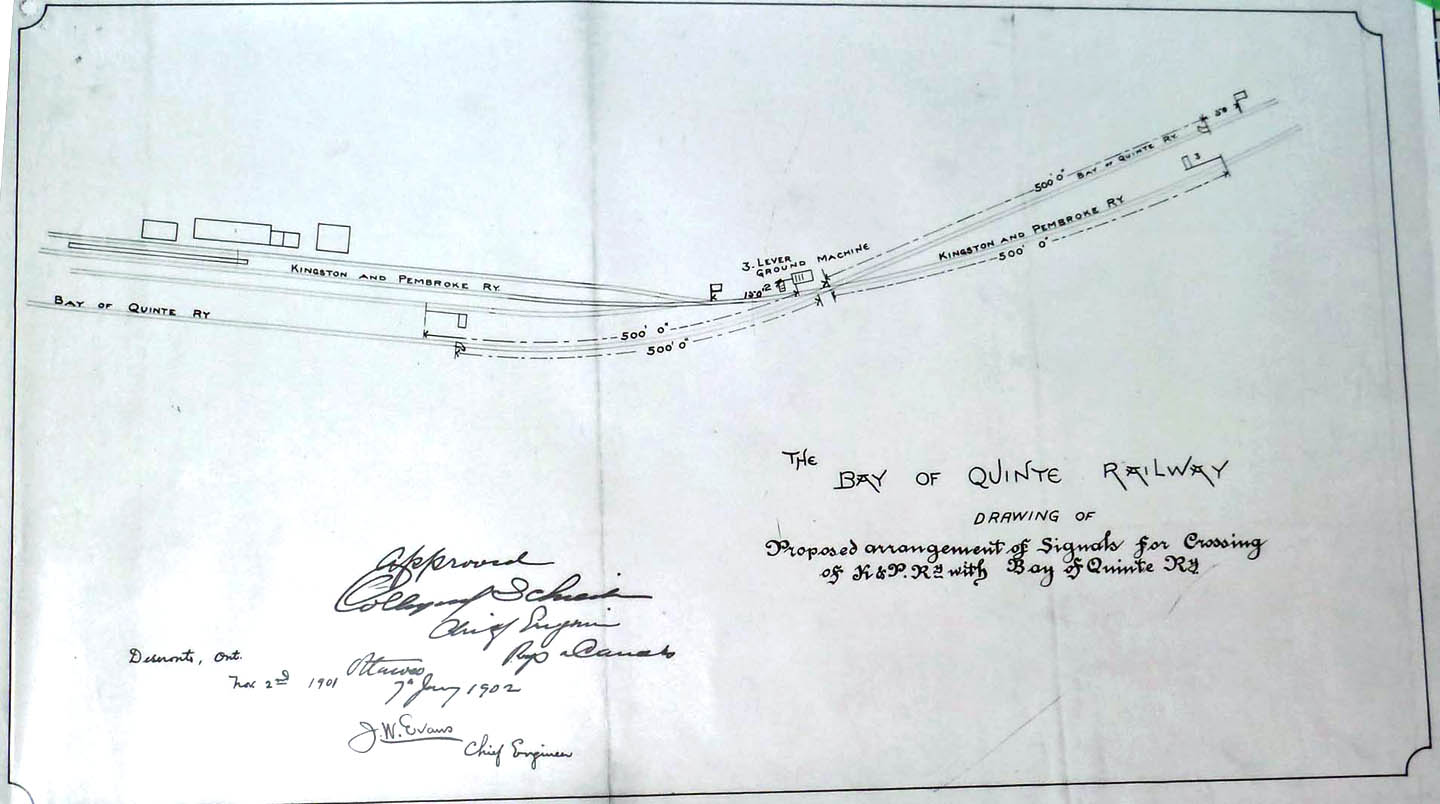 50
500' 0"
BAY OF QUINTE RY.
3
KINGSTON AND PEMBROKE RY
500' 0"
3-LEVER
GROUND MACHINE
2
KINGSTON AND PEMBROKE RY.
BAY OF QUINTE RY
500' 0"
500' 0"
THE
BAY OF QUINTE RAILWAY
DRAWING OF
Proposed arrangement of Signals for Crossing
of K & P. Ry with Bay of Quinte Ry.
Approved
Collingwood Schreiber
Chief Engineer
Rys & Canals
Deseronto, Ont.
Nov 2nd 1901
Ottawa
7th Jany 1902
J.W. Evans
Chief Engineer